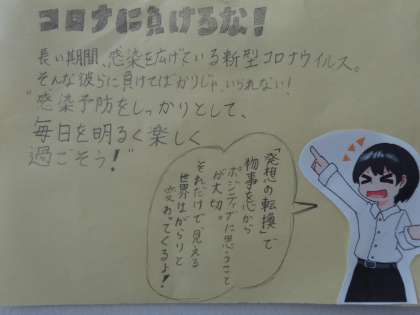 コロナに負けるな!
長い期間、感染を広げている新型コロナウイルス。
そんな彼らに負けてばかりじゃ、いられない!
"感染予防をしっかりとして、
毎日を明るく楽しく
過ごそう!"
「発想の転換」で
物事を心から
ポジティブに思うこと
が大切。
それだけで、見える
世界はがらりと
変わってくるよ!